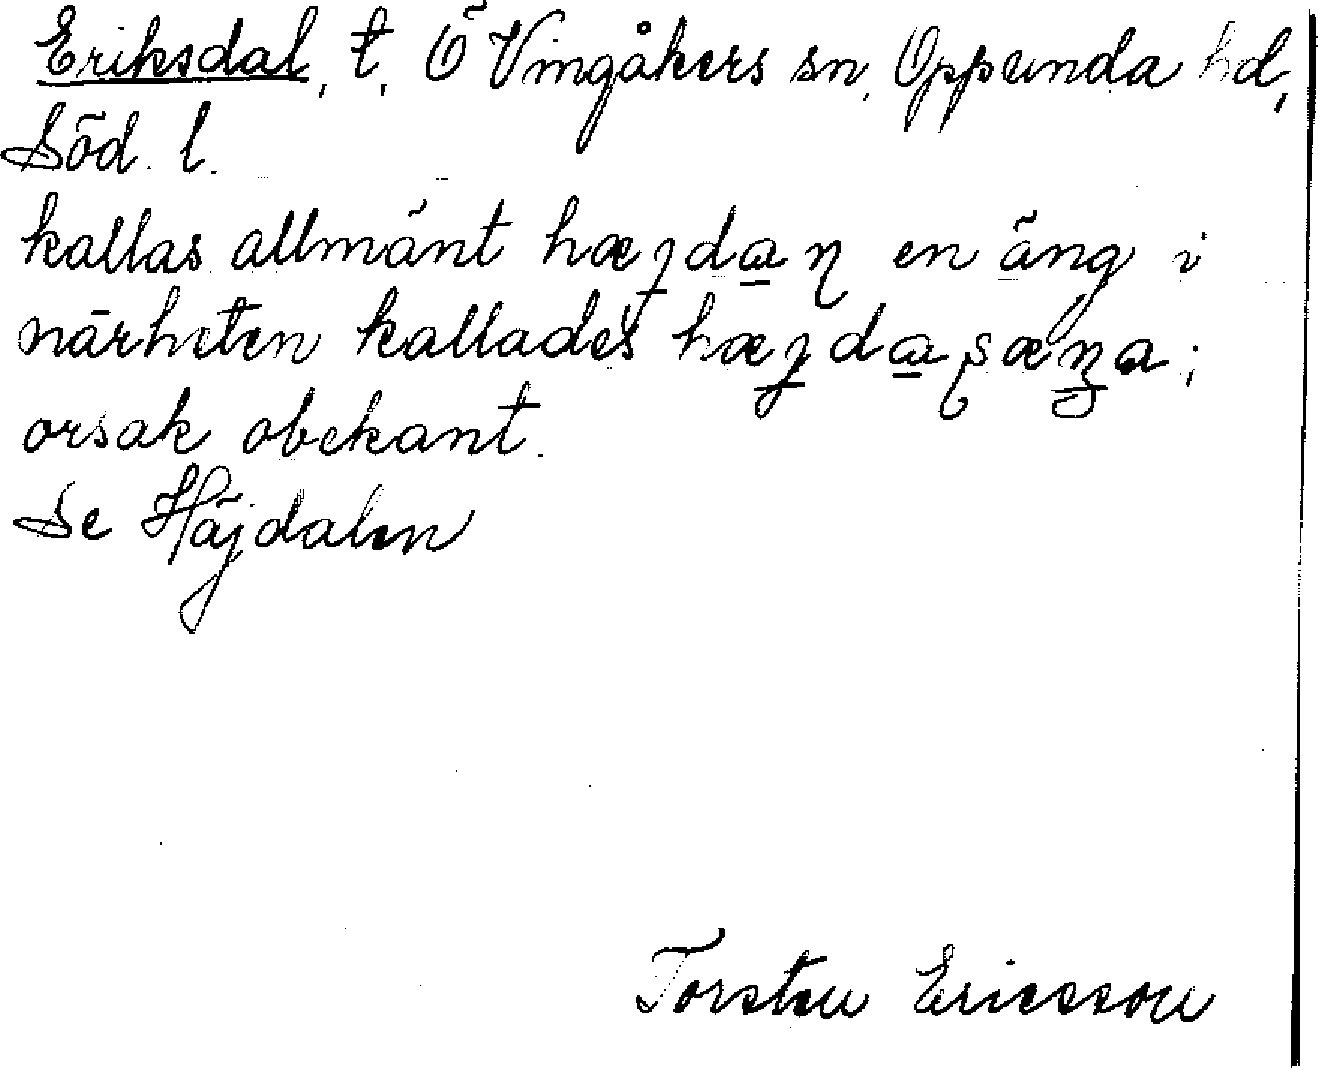 Eriksdal, t, Ö Vingåkers sn, Oppunda hd,
Söd. l.
kallas allmänt en äng i
närheten kallades
orsak obekant.
Se Häjdalen
Torsten Ericsson